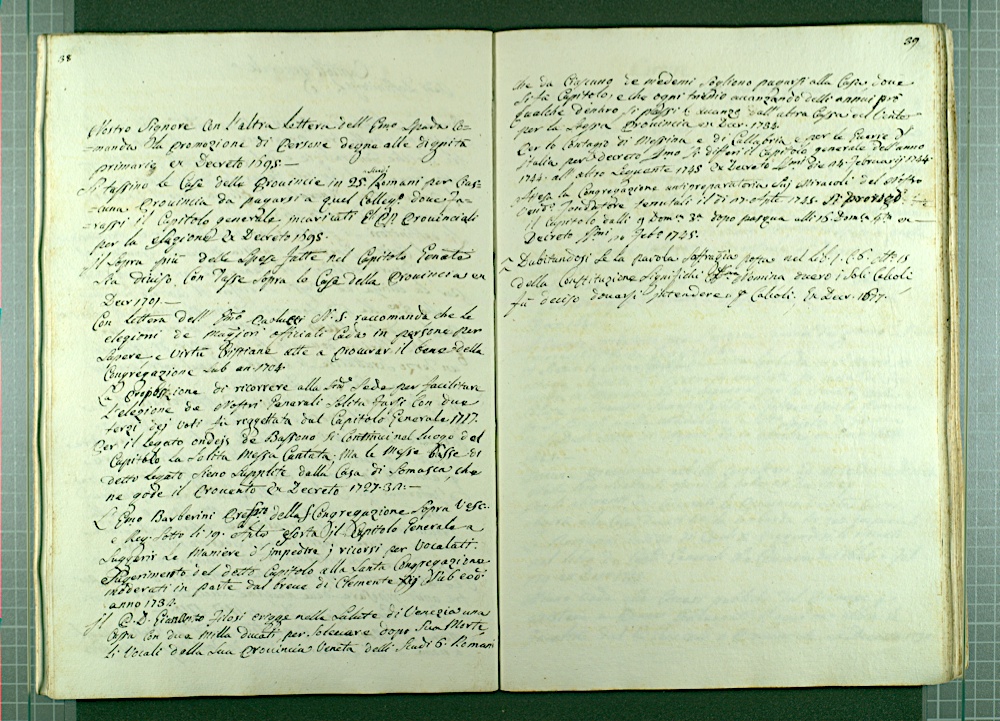 38
Nostro Signore con l'altra lettera dell'Emo Spada co=
=manda la promozione di persone degne alle dignità
primarie ex Decreto 1695.—
Si tassino le Case delle Provincie in 25 Scudi Romani per Cias=
=cuna Provincia da pagarsi a quel Collego dove fa=
=rassi il Capitolo generale incaricati i PP. Provinciali
per la elezione Ex Decreto 1695.
Il sopra più delle spese fatte nel Capitolo Venato
sia diviso con Tasse sopra le Case della Provincia ex
Decr 1701.—
Con lettera dell'Emo Paolucci N. S. raccomanda che le
elezioni de Maggiori officiali cada in persone per
sapere e virtù Cristiane atte a procurar il bene della
Congregazione sub an. 1704.
La Proposizione di ricorrere alla Sta Sede per facilitare
l'elezione de Nostri Generali solita farsi con due
terzi dei voti fù reggettata dal Capitolo Generale 1717.
Per il legato de Bassano si continui nel luogo del
Capitolo la solita Messa Cantata. Ma le Messe basse di
detto legato sieno supplite dalla Casa di Somasca, che
ne gode il Provento Ex Decreto 1727.
L'Emo Barberini Prefto della S. Congregazione sopra Vesc.
e Reg. sotto li 19. esorta il Capitolo Generale a
suggerir le Maniere d'impedire i ricorsi per Vocalati.
Sugerimento del detto Capitolo alla Santa Congregazione
moderati in parte dal breve di Clemente XII sub eod.
anno 1734.
Il P. D. Filosi erigge nella Salute di Venezia una
Cassa con due milla ducati per solevare dopo sua Morte
li Vocali della sua Provincia Veneta delli Scudi 6. Romani
39
che da Ciascuno de medemi sogliono pagarsi alla Casa dove
si fà Capitolo, e che ogni trienio avanzando delli annui pro
qualche denaro si passi l'avanzo dall'altra Cassa
per la stessa Provincia ex Decr. 1734.
Per lo Contagio di Messina e di Callabria e per le Guerre d'
Italia per Decreto si differì il Capitolo generale dell'anno
1744. all'altro seguente 1745 Ex Decreto die 14. Februarij 1744.
Atesa la Congregazione antipreparatoria sui Miracoli del Nostro
Fondatore tenutasi il dì 27. Aple 1745.
il Capitolo dalli 9 Domca 3a dopo pasqua alli 15 Domca 4ta ex
Decreto 10 Febo 1745.
Dubitandosi se la parola Suffragia posta nel lib. 1. C. 6. no 15
della Constituzione significhi Nomina overo i soli Calcoli
fù deciso doversi intendere i Calcoli. Ex Decr. 1677.